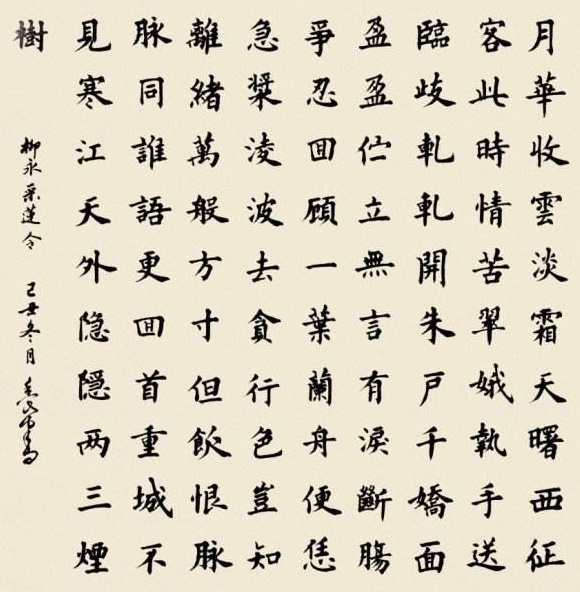 月華收雲淡霜天曙西征
客此時情苦翠娥執手送
臨歧軋軋開朱戶千嬌面
盈盈伫立無言有淚斷腸
爭忍囬顧一葉蘭舟便恁
急槳淩波去貪行色豈知
離緒萬般方寸但飲恨脉
脉同誰語更囬首重城不
見寒江天外隐隱两三煙
樹
柳永采蓮令 己丑冬月